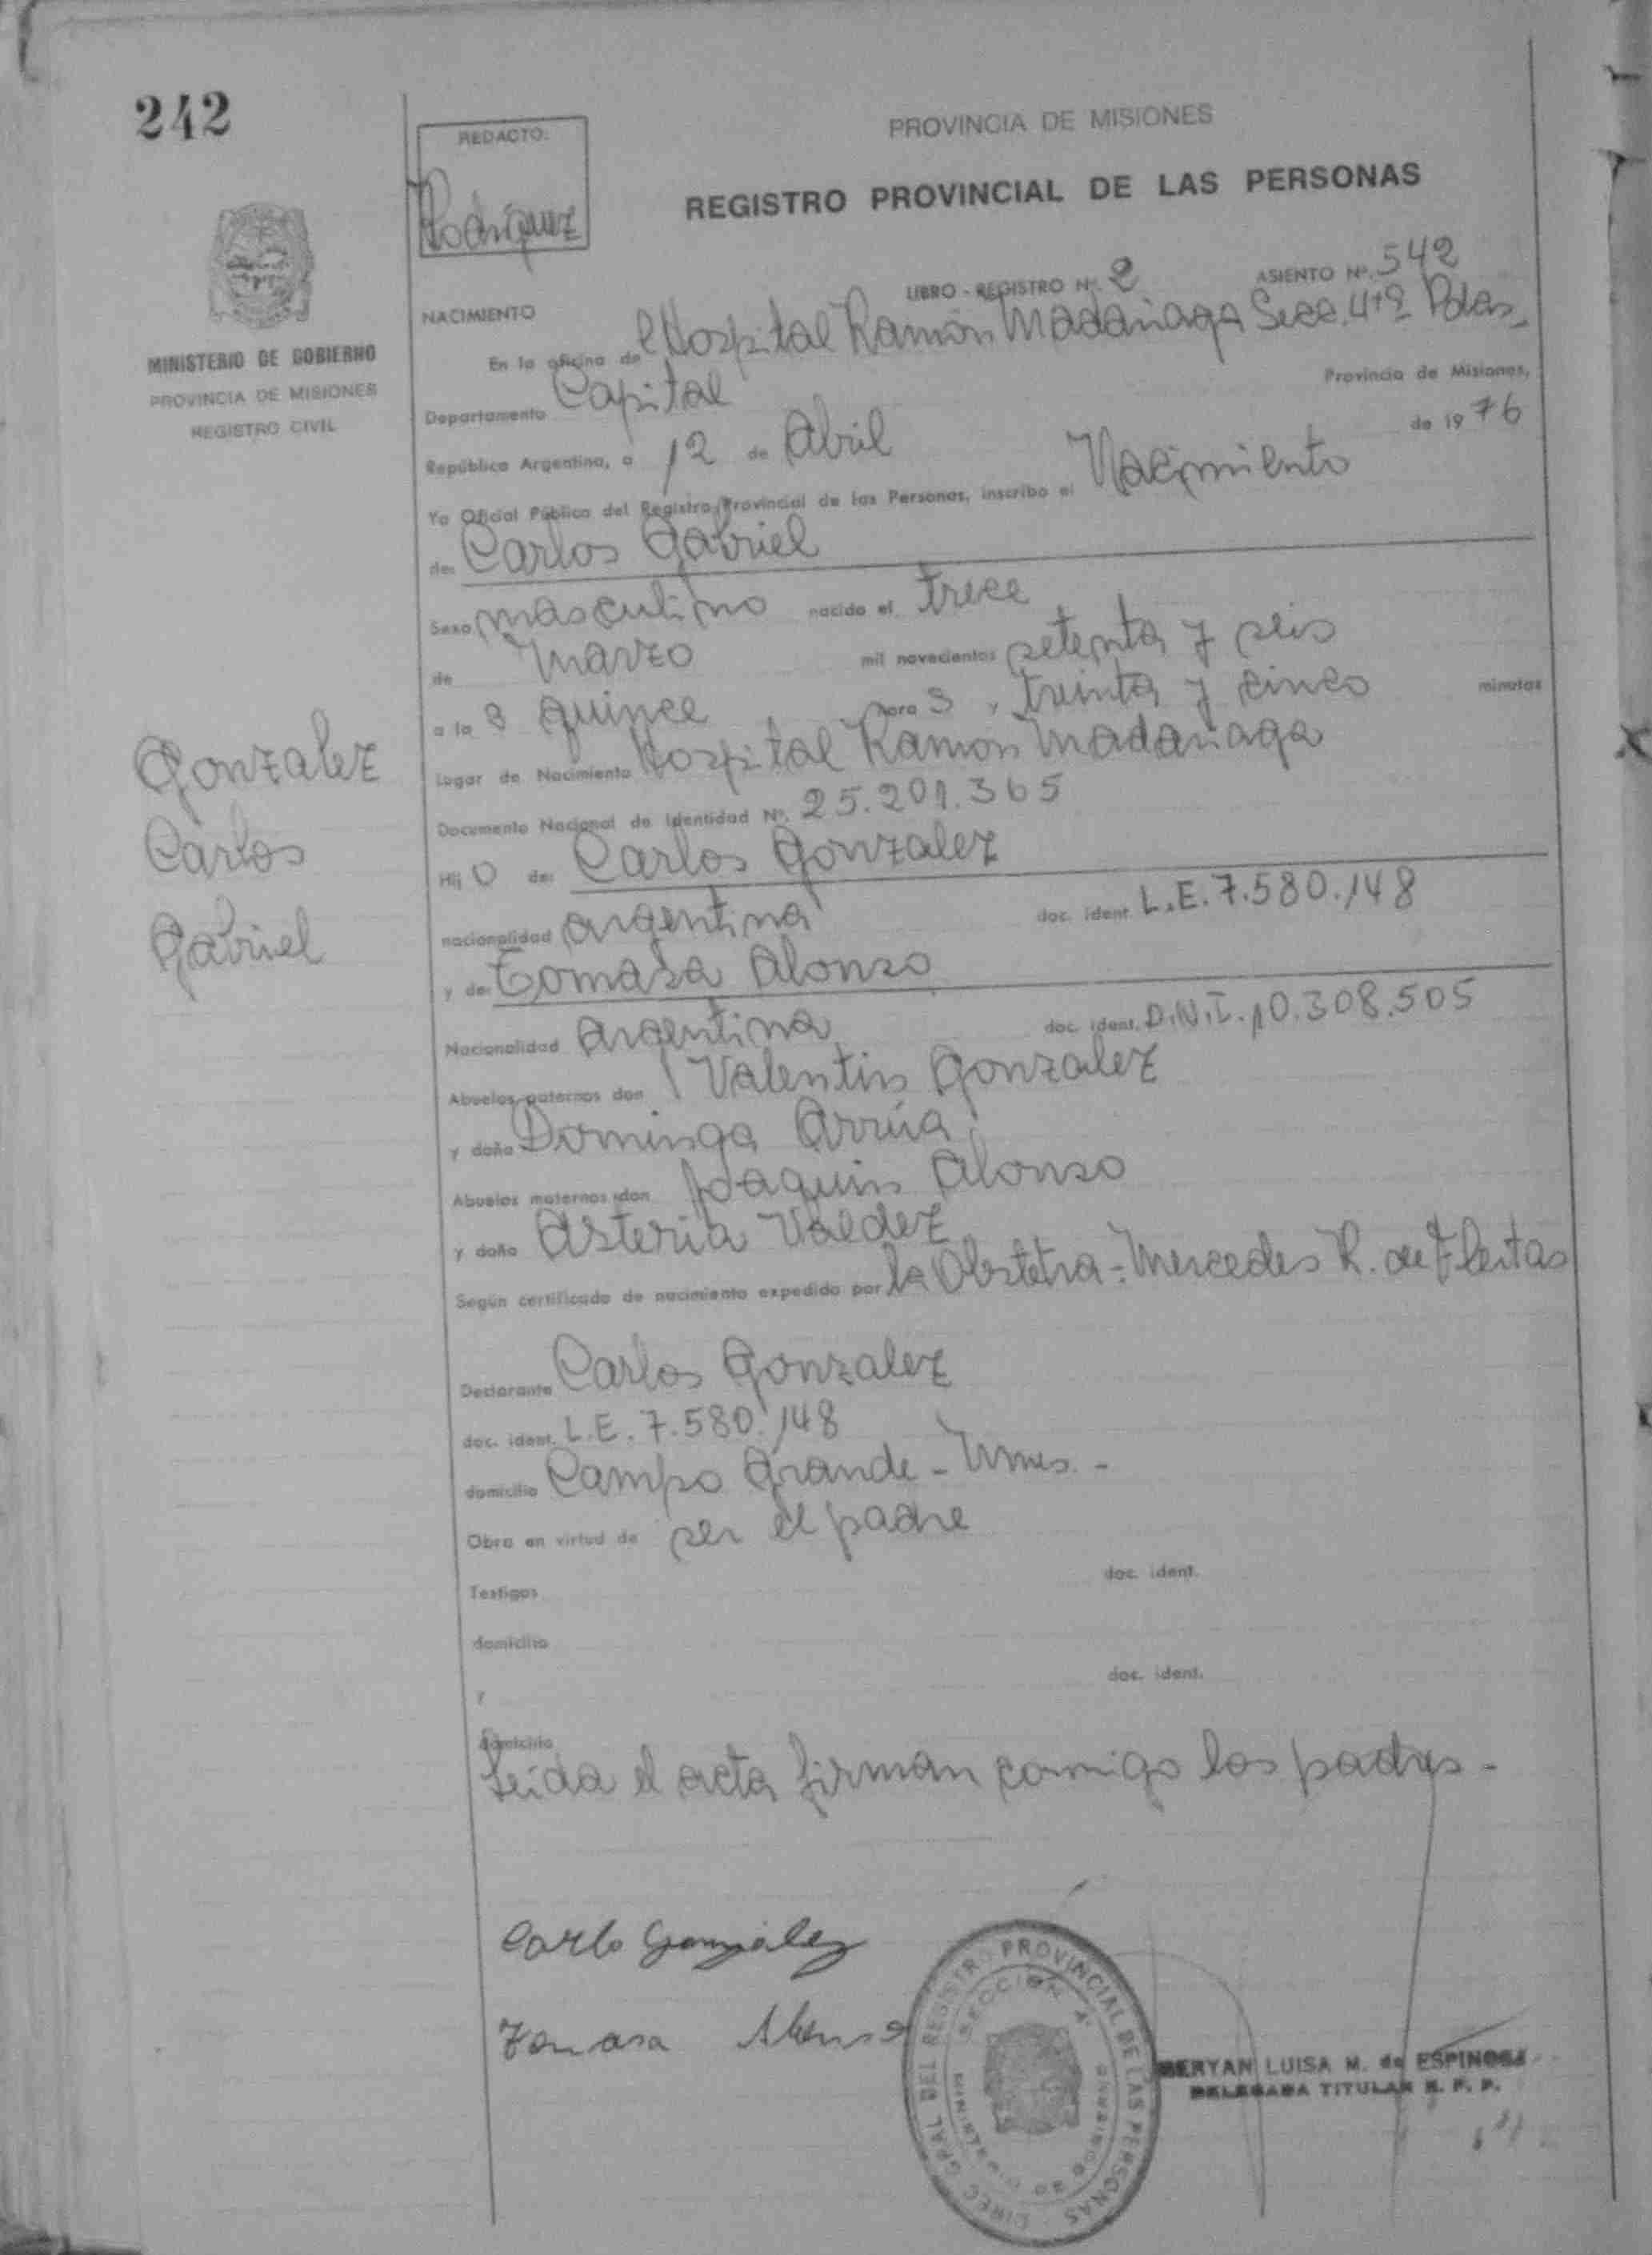 242
REDACTO:
Rodriguez
PROVINCIA DE MISIONES
REGISTRO PROVINCIAL DE LAS PERSONAS
MINISTERIO DE GOBIERNO
PROVINCIA DE MISIONES
REGISTRO CIVIL
LIBRO - REGISTRO Nº. 2 ASIENTO Nº. 542
NACIMIENTO
En la oficina de l Hospital Ramón Madariaga Secc. 4ta Pdas.
Departamento Capital Provincia de Misiones,
República Argentina, a 12 de Abril de 1976
Yo Oficial Público del Registro Provincial de las Personas, inscribo el Nacimiento
de: Carlos Gabriel
Sexo masculino nacido el trece
de Marzo mil novecientos setenta y seis
a la s quince hora s y treinta y cinco minutos
Lugar de Nacimiento Hospital Ramón Madariaga
Documento Nacional de Identidad Nº. 25.201.365
Gonzalez
Carlos
Gabriel
Hij o de: Carlos Gonzalez
nacionalidad argentina doc. ident. L.E. 7.580.148
y de: Tomasa Alonso
Nacionalidad argentina doc. ident. D.N.I. 10.308.505
Abuelos paternos don Valentin Gonzalez
y doña Dominga Arrúa
Abuelos maternos don Joaquin Alonso
y doña Asteria Valdez
Según certificado de nacimiento expedido por la Obstetra - Mercedes R. de Fleitas
Declarante Carlos Gonzalez
doc. ident. L.E. 7.580.148
domicilio Campo Grande - Mnes. -
Obra en virtud de ser el padre
Testigos doc. ident.
domicilio
y doc. ident.
domicilio
Leida el acta firman comigo los padres -
Carlo Gonzalez
Tomasa Alonso
DIREC. GRAL. DEL REGISTRO PROVINCIAL DE LAS PERSONAS
SECCION 4ª
MINISTERIO DE GOBIERNO
MERYAN LUISA M. de ESPINOSA
DELEGADA TITULAR R. P. P.